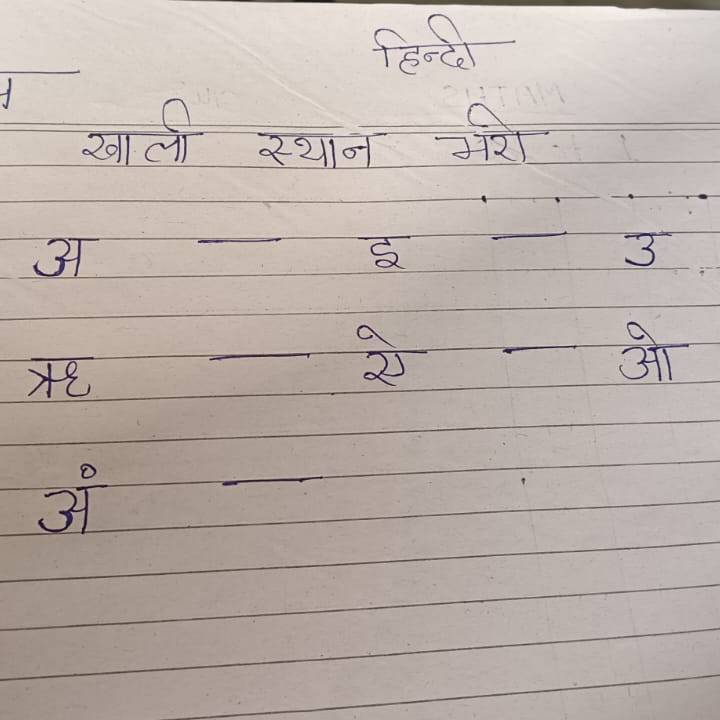 हिन्दी
खाली स्थान भरो
अ — इ — उ
ऋ — ऐ — ओ
अं —